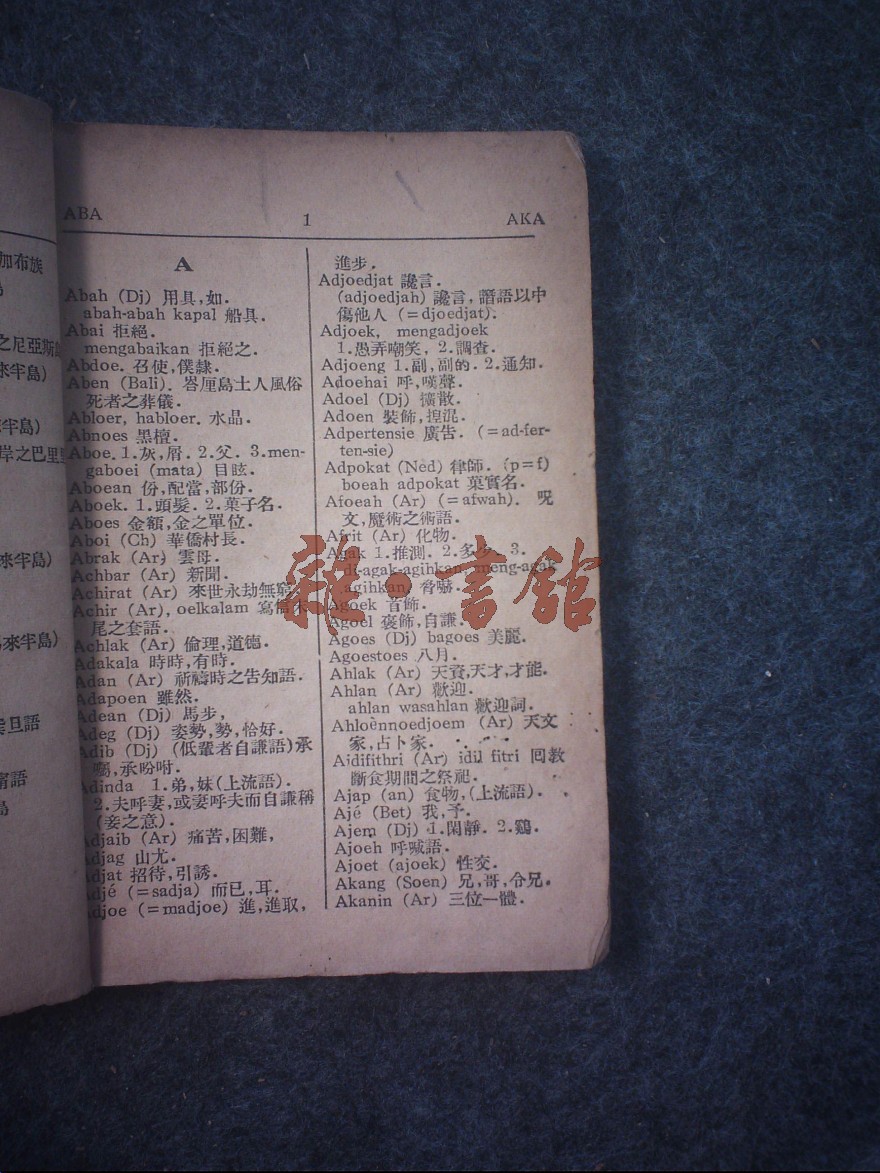 加布族
之尼亞斯島
來半島)
來半島)
岸之巴里
來半島)
來半島)
旦語
語
島
ABA 1 AKA
A
Abah (Dj) 用具,如.
abah-abah kapal 船具.
Abai 拒絕.
mengabaikan 拒絕之.
Abdoe. 召使,僕隸.
Aben (Bali). 峇厘島土人風俗
死者之葬儀.
Abloer, habloer. 水晶.
Abnoes 黑檀.
Aboe. 1.灰,屑. 2.父. 3.men-
gaboei (mata) 目眩.
Aboean 份,配當,部份.
Aboek. 1.頭髮. 2.菓子名.
Aboes 金額,金之單位.
Aboi (Ch) 華僑村長.
Abrak (Ar) 雲母.
Achbar (Ar) 新聞.
Achirat (Ar) 來世永劫無窮
Achir (Ar), oelkalam 寫信末
尾之套語.
Achlak (Ar) 倫理,道德.
Adakala 時時,有時.
Adan (Ar) 祈禱時之告知語.
Adapoen 雖然.
Adean (Dj) 馬步,
Adeg (Dj) 姿勢,勢,恰好.
Adib (Dj) (低輩者自謙語)承
囑,承吩咐.
Adinda 1.弟,妹(上流語).
2.夫呼妻,或妻呼夫而自謙稱
(妾之意).
Adjaib (Ar) 痛苦,困難,
Adjag 山尤.
Adjat 招待,引誘.
Adjé (=sadja) 而已,耳.
Adjoe (=madjoe) 進,進取,
進步.
Adjoedjat 讒言.
(adjoedjah) 讒言,譖語以中
傷他人 (=djoedjat).
Adjoek, mengadjoek
1.愚弄嘲笑, 2.調查.
Adjoeng 1.副,副的. 2.通知.
Adoehai 呼,嘆聲.
Adoel (Dj) 擴散.
Adoen 裝飾,捏混.
Adpertensie 廣告. (=ad-fer-
ten-sie)
Adpokat (Ned) 律師. (p=f)
boeah adpokat 菓實名.
Afoeah (Ar) (=afwah). 呪
文,魔術之術語.
Afrit (Ar) 化物.
Agak 1.推測. 2.多少. 3.
di-agak-agihkan, meng-agak
agihkan) 脅嚇.
Agoek 首飾.
Agoel 褒飾,自謙.
Agoes (Dj) bagoes 美麗.
Agoestoes 八月.
Ahlak (Ar) 天資,天才,才能.
Ahlan (Ar) 歡迎.
ahlan wasahlan 歡迎詞.
Ahloènnoedjoem (Ar) 天文
家,占卜家.
Aidifithri (Ar) idil fitri 回教
斷食期間之祭祀.
Ajap (an) 食物,(上流語).
Ajé (Bet) 我,予.
Ajem (Dj) 1.閑靜. 2.鷄.
Ajoeh 呼喊語.
Ajoet (ajoek) 性交.
Akang (Soen) 兄,哥,令兄.
Akanin (Ar) 三位一體.
雜·書館